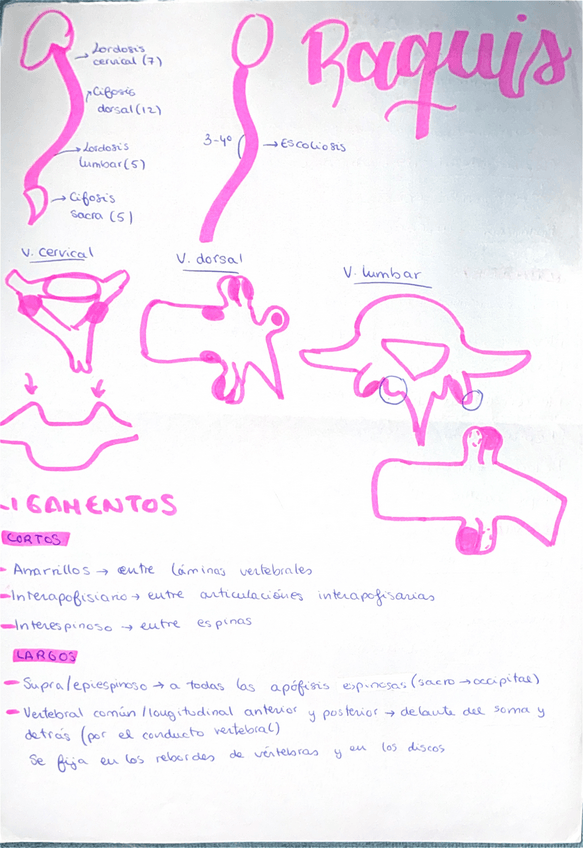 Raquis
Lordosis
cervical (7)
Cifosis
dorsal (12)
Lordosis
lumbar (5)
Cifosis
sacra (5)
3-4º
Escoliosis
V. cervical
V. dorsal
V. lumbar
LIGAMENTOS
CORTOS
- Amarrillos → entre láminas vertebrales
- Interapofisiano → entre articulaciones interapofisarias
- Interespinoso → entre espinas
LARGOS
- Supra/epiespinoso → a todas las apófisis espinosas (sacro → occipital)
- Vertebral común/longitudinal anterior y posterior → delante del soma y
detrás (por el conducto vertebral)
Se fija en los rebordes de vértebras y en los discos